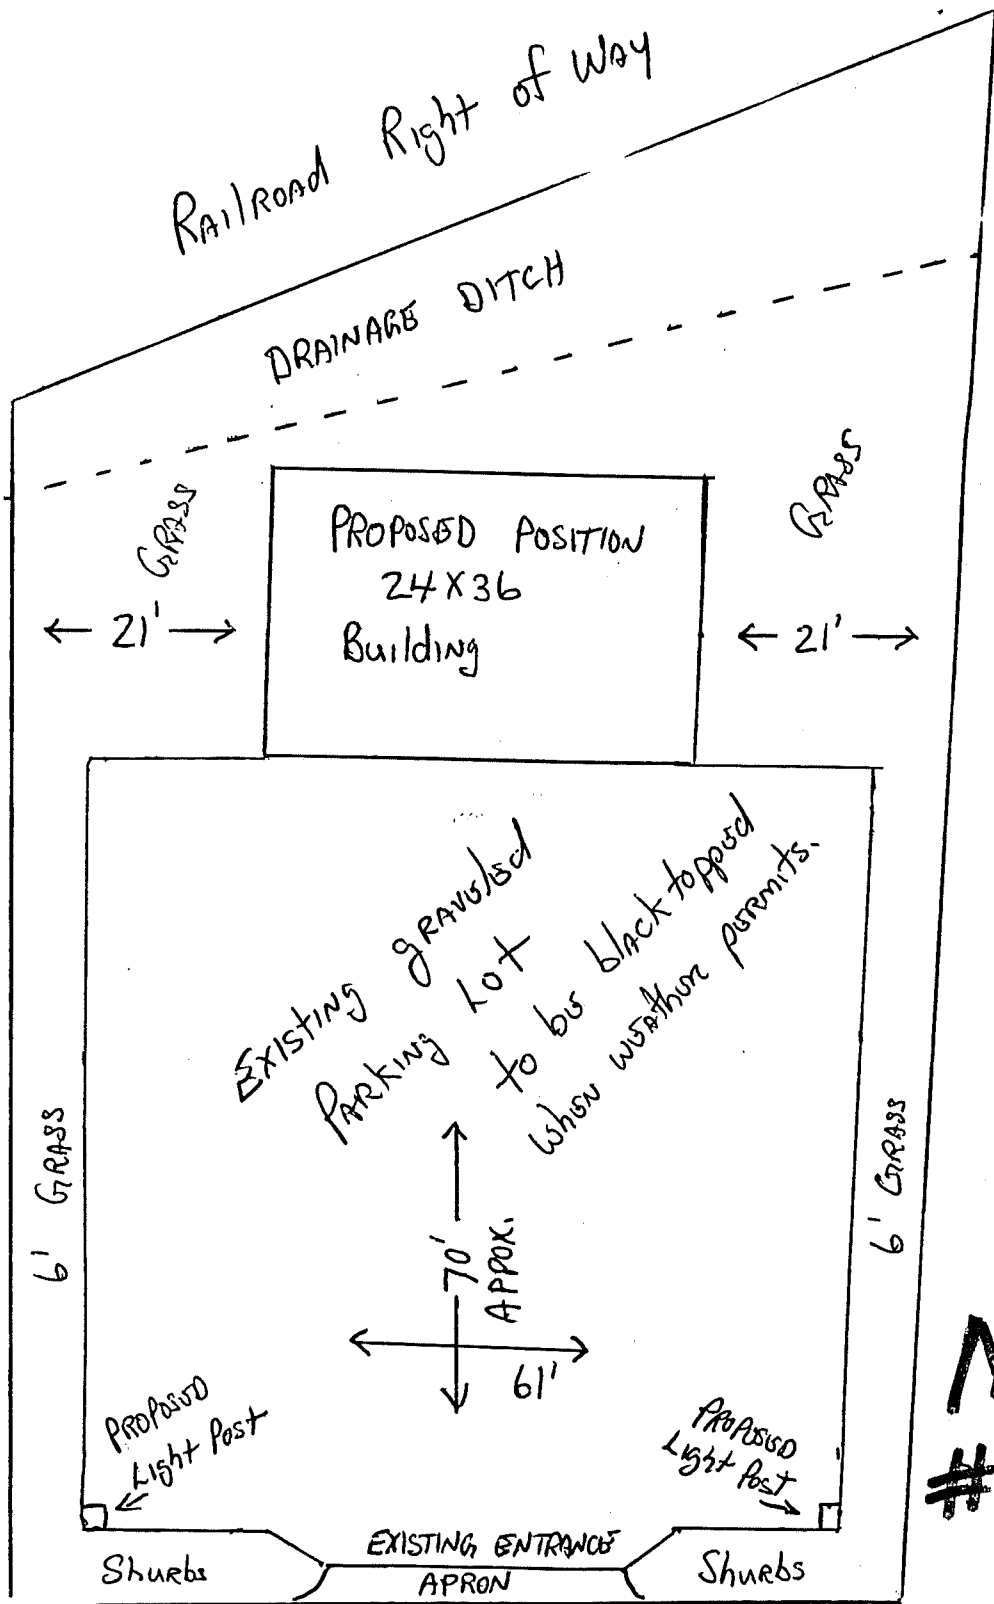 Railroad Right of Way
DRAINAGE DITCH
GRASS
GRASS
PROPOSED POSITION
24 X 36
Building
21'
21'
Existing graveled
Parking Lot
to be blacktopped
when weather permits.
6' GRASS
6' GRASS
70'
APPOX.
61'
PROPOSED
Light Post
PROPOSED
Light Post
#
EXISTING ENTRANCE
APRON
Shurbs
Shurbs